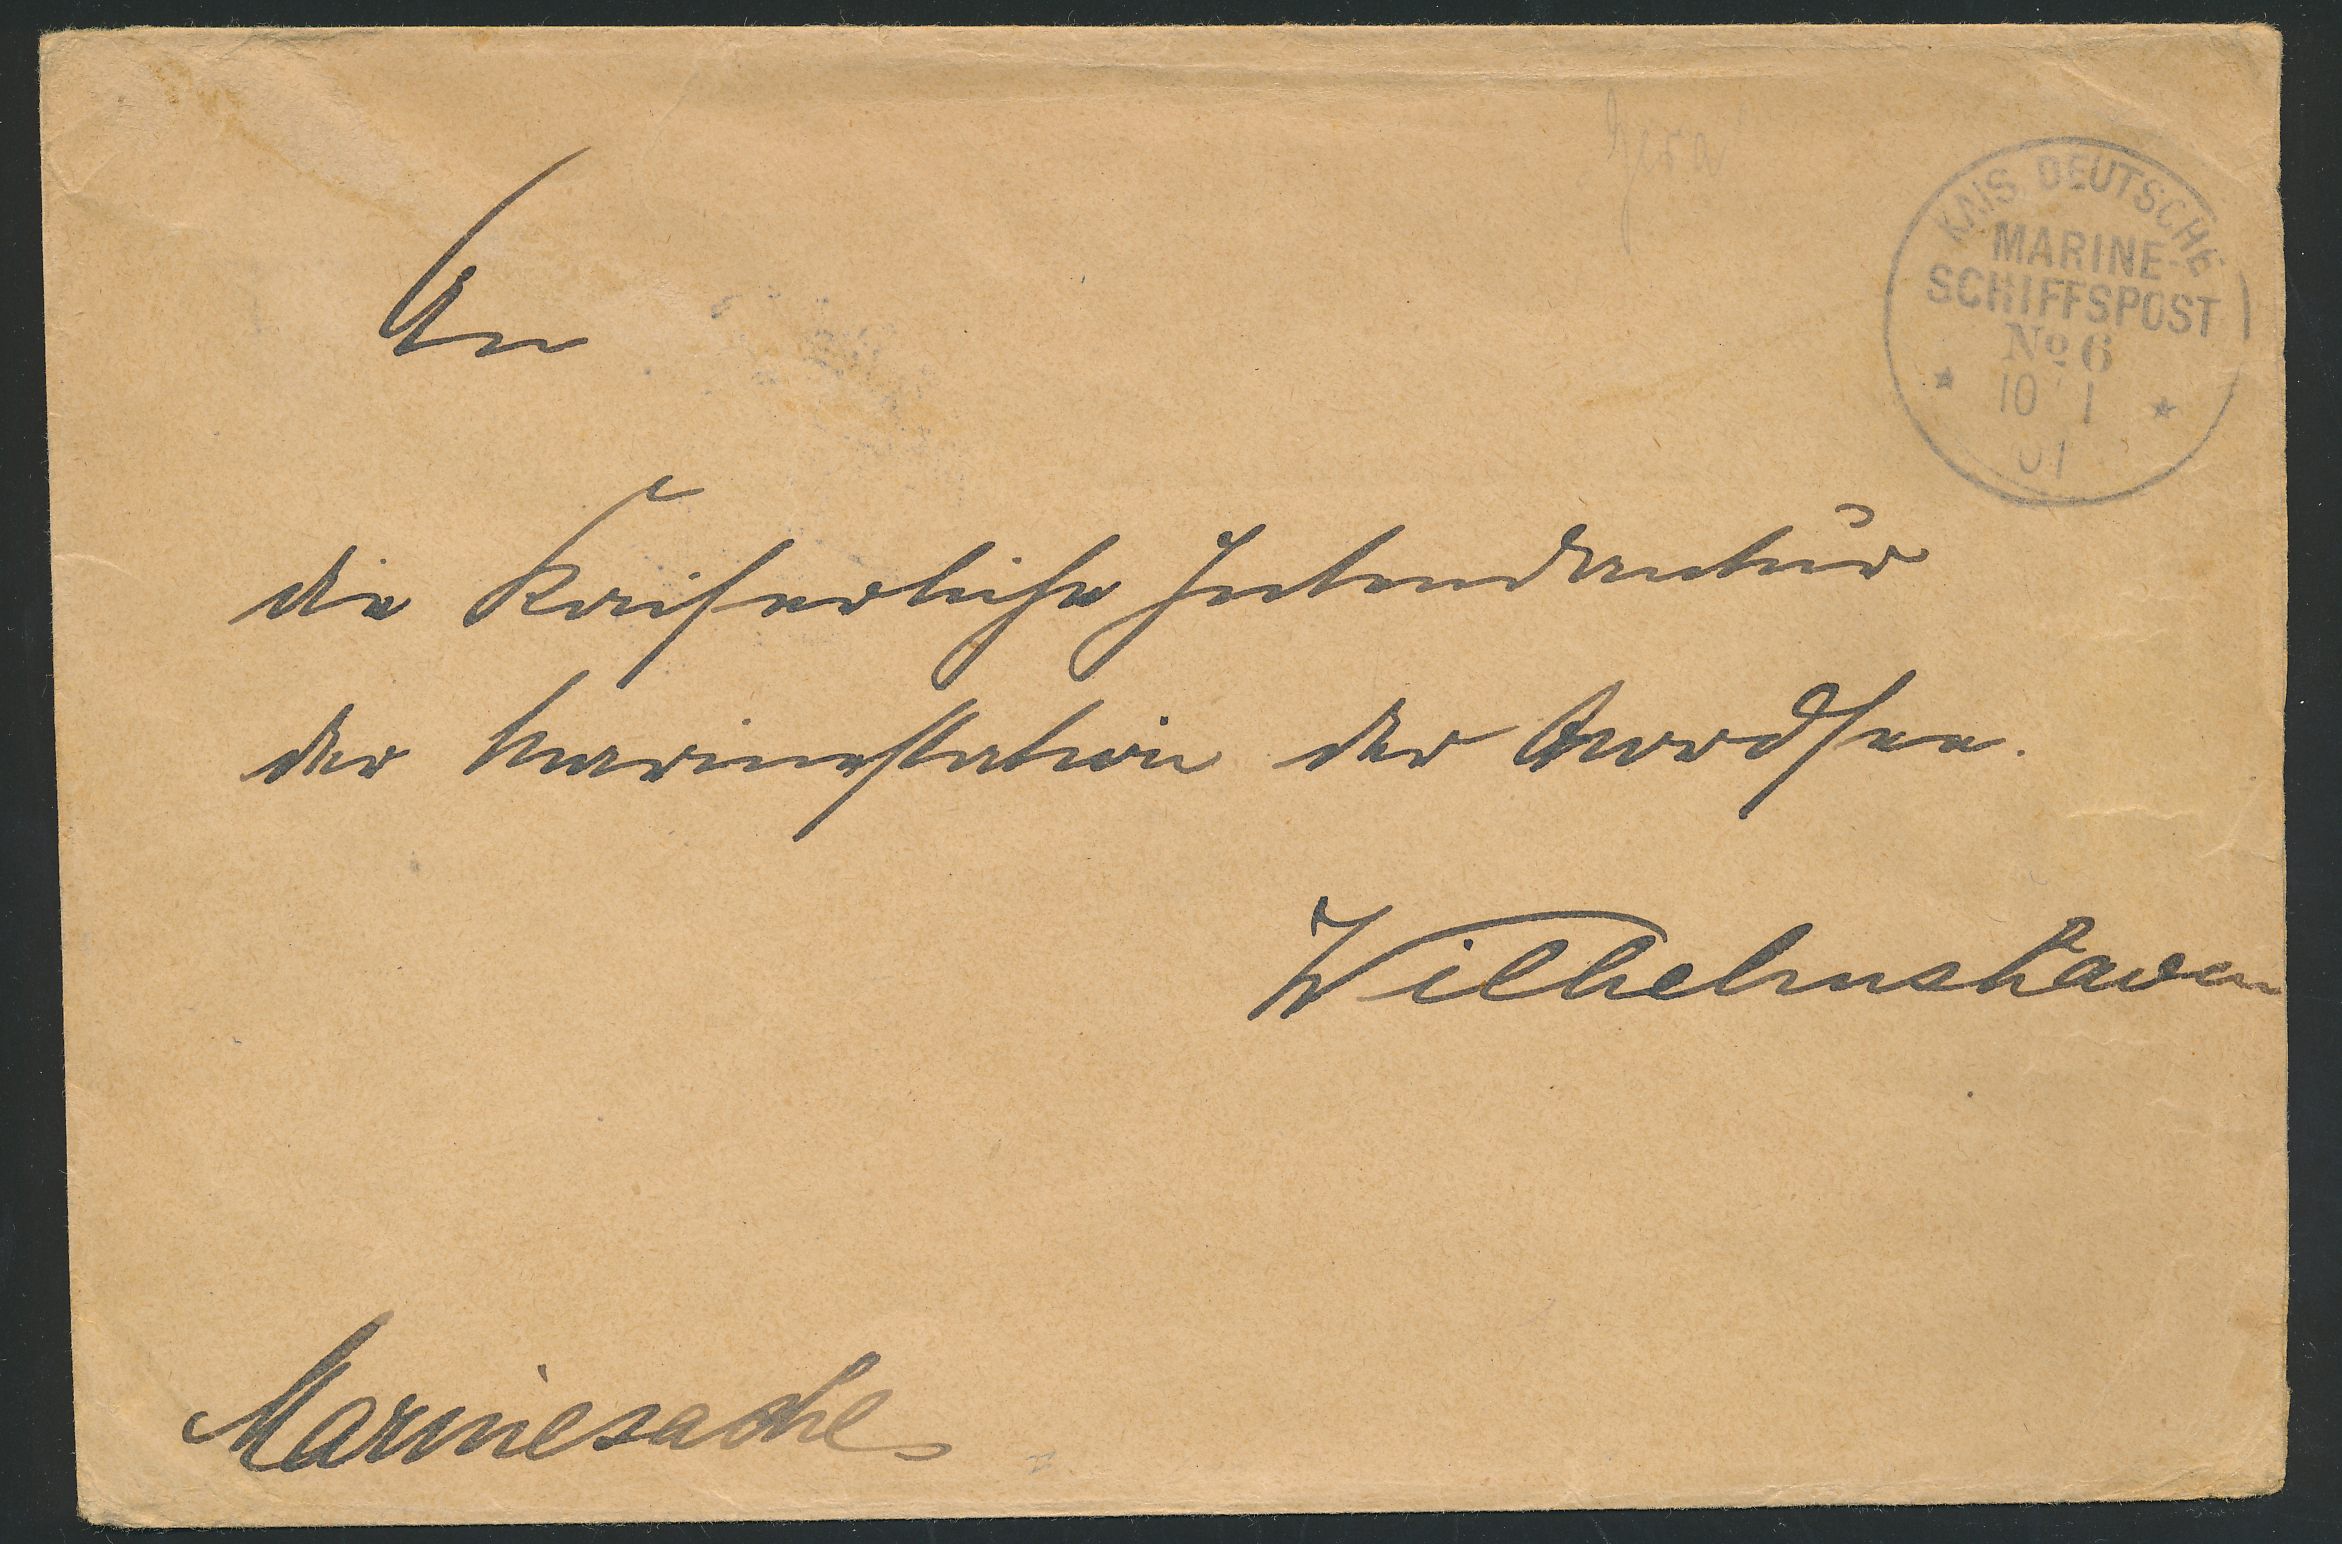 Gera
KAIS. DEUTSCHE
MARINE-
SCHIFFSPOST
No 6
10 1
01
An
die Kaiserliche Intendantur
der Marinestation der Nordsee.
Wilhelmshaven
Marinesache